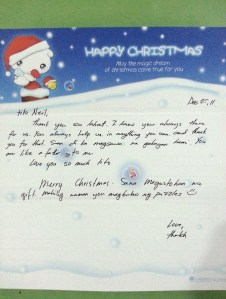 HAPPY CHRISTMAS
May the magic dream
of christmas come true for you
Dec 25, 11
Tito Neil,
Thank you so much. I know you always there
for us. You always help us in anything you can and thank
you for that. Sana di ka magsawa na gabayan kami. You
are like a father to me.
Love you so much tito
Merry Christmas. Sana magustuhan mo
gift. Mahilig naman you magbubuo ng puzzles
Love,